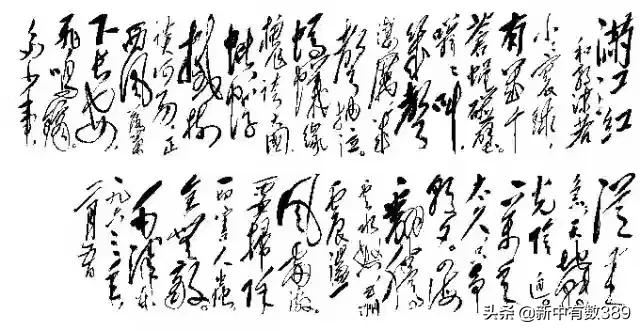 满江红
和郭沫若
小小寰球,
有几个
苍蝇碰壁。
嗡嗡叫
几声
凄厉几
声抽泣。
蚂蚁缘
槐夸大国
蚍蜉
撼树
谈何易。正
西风落叶
下长安
飞鸣镝。
多少事,
从来
急。天地转
光阴迫。
一万年
太久只争
朝夕。四海
翻腾
云水怒五洲
震荡
风雷激。
要扫除
一切害人虫
全无敌。
毛泽东
一九六三年
头条 @新中有数389